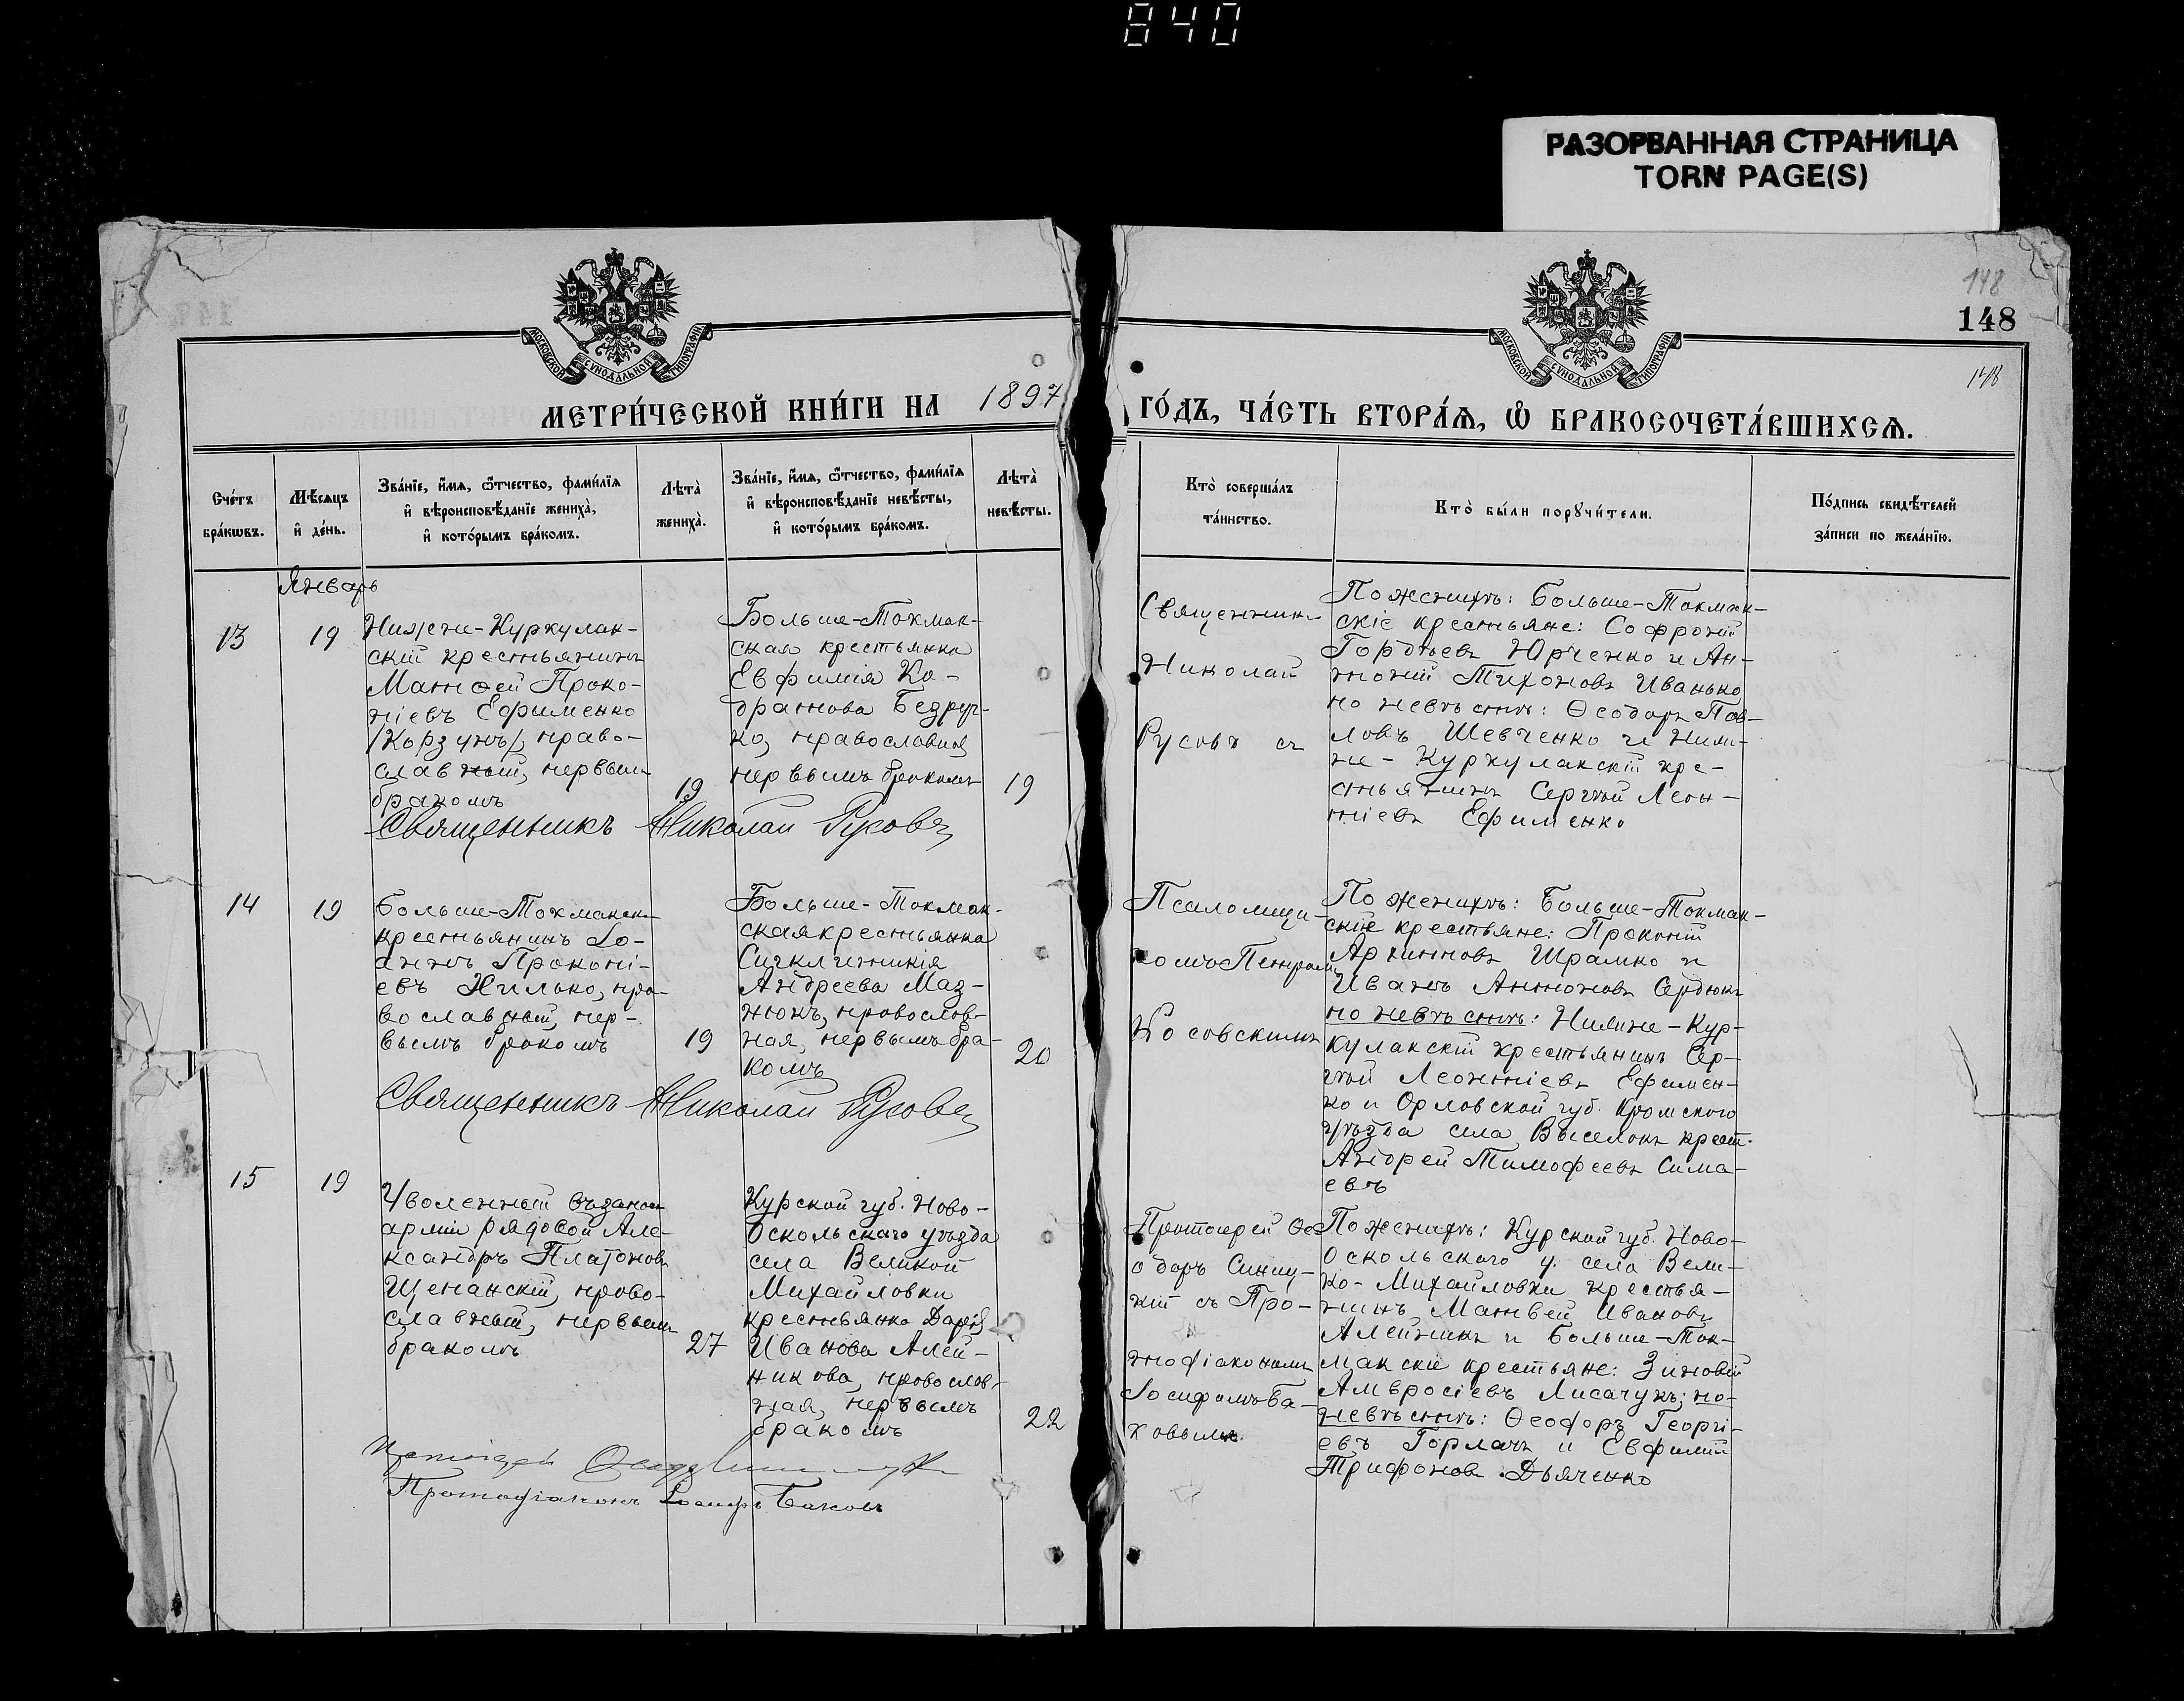 840
РАЗОРВАННАЯ СТРАНИЦА
TORN PAGE(S)
148
148
148
МОСКОВСКОЙ СѴНОДАЛЬНОЙ ТИПОГРАФІИ
МОСКОВСКОЙ СѴНОДАЛЬНОЙ ТИПОГРАФІИ
МЕТРИ́ЧЕСКОЙ КНИ́ГИ НА 1897
ГО́ДЪ, ЧА́СТЬ ВТОРА́Ѧ, Ѽ БРАКОСОЧЕТА́ВШИХСѦ.
Сче́тъ
бра́кѡвъ.
Мѣ́сѧцъ
и҆ де́нь.
Зва́нїе, и҆́мѧ, ѻ҆́тчество, фами́лїѧ
и҆ вѣроисповѣ́данїе жениха̀,
и҆ кото́рымъ бра́комъ.
Лѣта̀
жениха̀.
Зва́нїе, и҆́мѧ, ѻ҆́тчество, фами́лїѧ
и҆ вѣроисповѣ́данїе невѣ́сты,
и҆ кото́рымъ бра́комъ.
Лѣта̀
невѣ́сты.
Кто̀ соверша́лъ
та́инство.
Кто̀ бы́ли порꙋчи́тели.
По́дпись свидѣ́телей
за́писи по жела́нїю.
Январь
13
19
Нижне-Куркулак-
скій крестьянинъ
Матѳей Проко-
піевъ Ефименко
/Корзунъ/, право-
славный, первымъ
бракомъ
19
Больше-Токмак-
ская крестьянка
Евфимія Ко-
дратова Безруч-
ко, православная
первымъ бракомъ
19
Священникъ Николай Русовъ
Священникъ
Николай
Русовъ съ
По женихѣ: Больше-Токмак-
скіе крестьяне: Софроній
Гордѣевъ Юрченко и Ан-
тоній Тихоновъ Иванько
по невѣстѣ: Ѳеодоръ Пав-
ловъ Шевченко и Ниж-
не-Куркулакскій кре-
стьянинъ Сергѣй Леон-
тіевъ Ефименко
14
19
Больше-Токмакскій
крестьянинъ Іо-
аннъ Прокопі-
евъ Хилько, пра-
вославный, пер-
вымъ бракомъ
19
Больше-Токмак-
ская крестьянка
Сигклитикія
Андреева Маз-
нюкъ, православ-
ная, первымъ бра-
комъ
20
Священникъ Николай Русовъ
Псаломщи-
комъ Петромъ
Косовскимъ
По женихѣ: Больше-Токмак-
скіе крестьяне: Прокопій
Архиповъ Шрамко и
Иванъ Антоновъ Сердюкъ
по невѣстѣ: Нижне-Кур-
кулакскій крестьянинъ Сер-
гѣй Леонтіевъ Ефимен-
ко и Орловской губ. Кромского
уѣзда села Выселокъ крест.
Андрей Тимофеевъ Сима-
евъ
15
19
Уволенный въ запасъ
арміи рядовой Але-
ксандръ Платоновъ
Щепанскій, право-
славный, первымъ
бракомъ
27
Курской губ. Ново-
Оскольскаго уѣзда
села Великой
Михайловки
крестьянка Дарія
Иванова Алей-
никова, православ-
ная, первымъ
бракомъ
22
Протоіерей
Протодіаконъ Іосифъ Баховъ
Протоіерей Ѳе-
одоръ Синиц-
кій съ Про-
тодіакономъ
Іосифомъ Ба-
ховымъ
По женихѣ: Курской губ. Ново-
Оскольского у. села Вели-
ко-Михайловки крестья-
нинъ Матвей Ивановъ
Алейникъ и Больше-Ток-
макскіе крестьяне: Зиновій
Амвросіевъ Лисачукъ; по-
невѣстѣ: Ѳеодоръ Георгі-
евъ Горлачъ и Евфимій
Трифоновъ Дьяченко